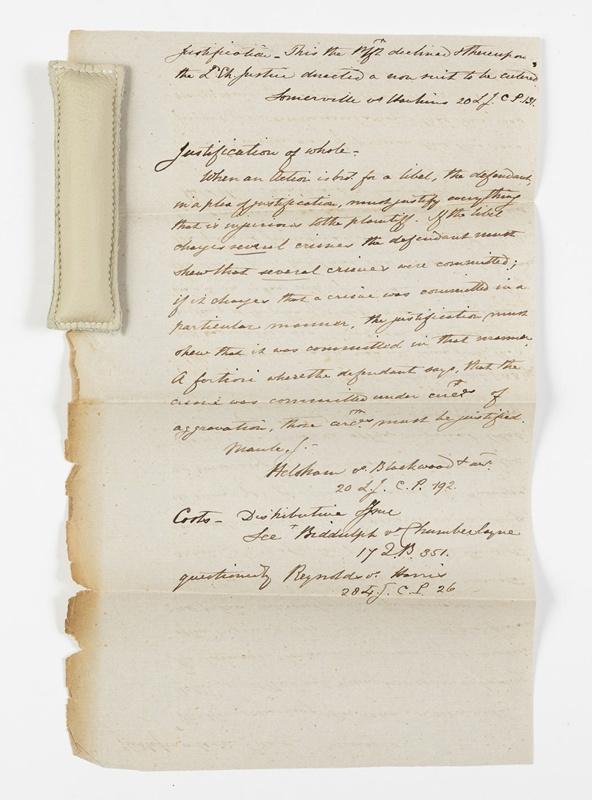 Justification – This the Plff declined & thereupon
the Ld Ch. Justice directed a non suit to be entered
Somerville vs Hawkins 20 L.J. C.P. 131.
Justification of whole –
When an Action is brot. for a libel, the defendant,
in a plea of justification, must justify everything
that is injurious to the plaintiff. If the libel
charges several crimes the defendant must
shew that several crimes were committed;
if it charges that a crime was committed in a
particular manner, the justification must
shew that it was committed in that manner
A fortiori where the defendant says, that the
crime was committed under circes of
aggravation, those circes must be justified.
Maule, J. –
Helsham vs Blackwood & anr.
20 L.J. C.P. 192.
Costs – Distributive Issue
See Biddulph vs Chamberlayne
17 Q.B. 351.
questioned by Reynolds vs. Harris
28 L.J. C.P. 26